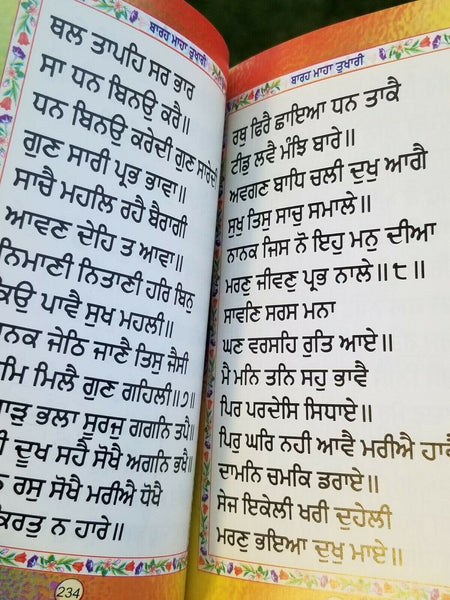 ਬਾਰਹ ਮਾਹਾ ਤੁਖਾਰੀ
ਥਲ ਤਾਪਹਿ ਸਰ ਭਾਰ
ਸਾ ਧਨ ਬਿਨਉ ਕਰੈ॥
ਧਨ ਬਿਨਉ ਕਰੇਦੀ ਗੁਣ ਸਾਰੇਦੀ
ਗੁਣ ਸਾਰੀ ਪ੍ਰਭ ਭਾਵਾ॥
ਸਾਚੈ ਮਹਲਿ ਰਹੈ ਬੈਰਾਗੀ
ਆਵਣ ਦੇਹਿ ਤ ਆਵਾ॥
ਨਿਮਾਣੀ ਨਿਤਾਣੀ ਹਰਿ ਬਿਨੁ
ਕਿਉ ਪਾਵੈ ਸੁਖ ਮਹਲੀ॥
ਜੇਠਿ ਜਾਣੈ ਤਿਸੁ ਜੈਸੀ
ਮਿਲੈ ਗੁਣ ਗਹਿਲੀ॥੭॥
ਭਲਾ ਸੂਰਜੁ ਗਗਨਿ ਤਪੈ॥
ਦੂਖ ਸਹੈ ਸੋਖੈ ਅਗਨਿ ਭਖੈ॥
ਰਸੁ ਸੋਖੈ ਮਰੀਐ ਧੋਖੈ
ਕਿਰਤੁ ਨ ਹਾਰੇ॥
234
ਬਾਰਹ ਮਾਹਾ ਤੁਖਾਰੀ
ਰਥੁ ਫਿਰੈ ਛਾਇਆ ਧਨ ਤਾਕੈ
ਟੀਡੁ ਲਵੈ ਮੰਝਿ ਬਾਰੇ॥
ਅਵਗਣ ਬਾਧਿ ਚਲੀ ਦੁਖੁ ਆਗੈ
ਸੁਖੁ ਤਿਸੁ ਸਾਚੁ ਸਮਾਲੇ॥
ਨਾਨਕ ਜਿਸ ਨੋ ਇਹੁ ਮਨੁ ਦੀਆ
ਮਰਣੁ ਜੀਵਣੁ ਪ੍ਰਭ ਨਾਲੇ॥੮॥
ਸਾਵਣਿ ਸਰਸ ਮਨਾ
ਘਣ ਵਰਸਹਿ ਰੁਤਿ ਆਏ॥
ਮੈ ਮਨਿ ਤਨਿ ਸਹੁ ਭਾਵੈ
ਪਿਰ ਪਰਦੇਸਿ ਸਿਧਾਏ॥
ਪਿਰੁ ਘਰਿ ਨਹੀ ਆਵੈ ਮਰੀਐ ਹਾਵੈ
ਦਾਮਨਿ ਚਮਕਿ ਡਰਾਏ॥
ਸੇਜ ਇਕੇਲੀ ਖਰੀ ਦੁਹੇਲੀ
ਮਰਣੁ ਭਇਆ ਦੁਖੁ ਮਾਏ॥